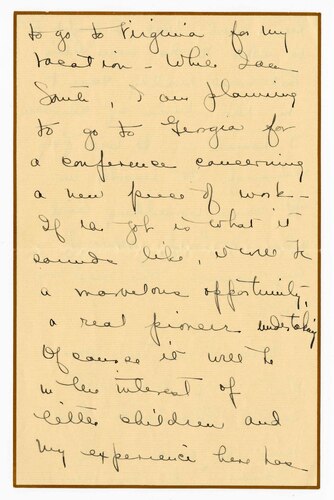 to go to Virginia for my
vacation - While I am
South, I am planning
to go to Georgia for
a conference concerning
a new piece of work -
If the job is what it
sounds like, it will be
a marvelous opportunity,
a real pioneer undertaking
Of course it will be
in the interest of
little children and
my experience here has